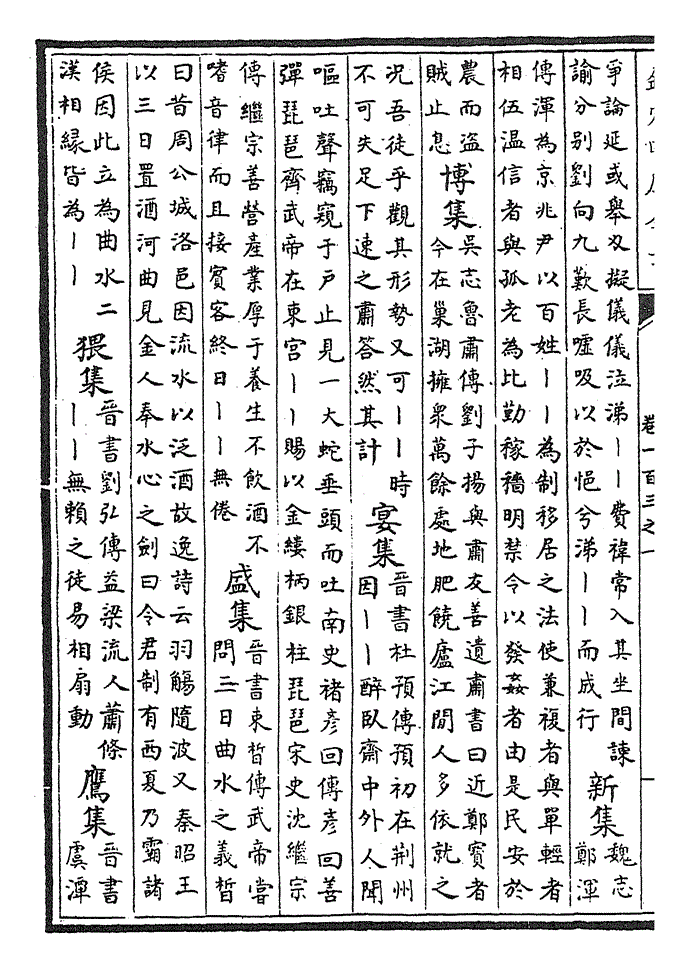 卷一百三之一
爭論延或舉刄擬儀儀泣涕丨丨費禕常入其坐間諫
諭分别劉向九歎長嘘吸以於悒兮涕丨丨而成行
新集
魏志
鄭渾
傳渾為京兆尹以百姓丨丨為制移居之法使兼複者與單輕者
相伍温信者與孤老為比勤稼穡明禁令以發姦者由是民安於
農而盜
賊止息
博集
吳志魯肅傳劉子揚與肅友善遺肅書曰近鄭寳者
今在巢湖擁衆萬餘處地肥饒廬江閒人多依就之
况吾徒乎觀其形勢又可丨丨時
不可失足下速之肅答然其計
宴集
晉書杜預傳預初在荆州
因丨丨醉臥齋中外人聞
嘔吐聲竊窺于戶止見一大蛇垂頭而吐南史褚彦回傳彦回善
彈琵琶齊武帝在東宮丨丨賜以金縷柄銀柱琵琶宋史沈繼宗
傳繼宗善營産業厚于養生不飲酒不
嗜音律而且接賓客終日丨丨無倦
盛集
晉書束晳傳武帝嘗
問三日曲水之義晳
曰昔周公城洛邑因流水以泛酒故逸詩云羽觴隨波又秦昭王
以三日置酒河曲見金人奉水心之劍曰令君制有西夏乃霸諸
侯因此立為曲水二
漢相縁皆為丨丨
猥集
晉書劉弘傳益梁流人蕭條
丨丨無賴之徒易相扇動
鷹集
晉書
虞潭